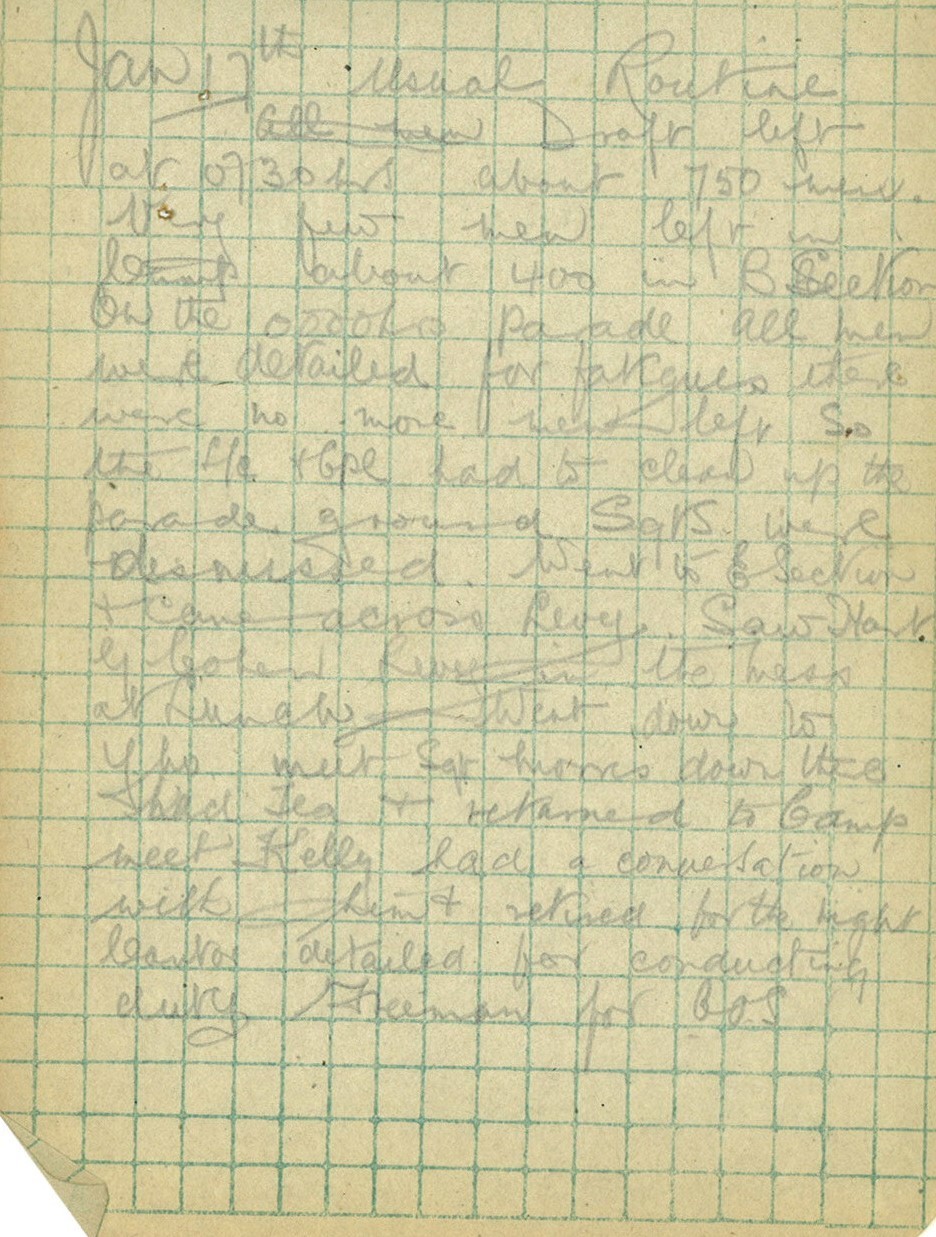 Jan 17th Usual Routine
All men Draft left
at 0730 hrs about 750 men.
Very few men left in
Camp about 400 in B Section
On the parade all men
were detailed for fatigues there
were no more men left So
the L/c + Cpl had to clean up the
parade ground Sgts. were
dismissed. Went to Section
+ Came across Levy. Saw Hart
& Cohen in the mess
at Lunch Went down to
meet Sgt Morris down there
had Tea + returned to Camp
meet Kelly had a conversation
with him + retired for the night
Cantor detailed for conducting
duty Freeman for